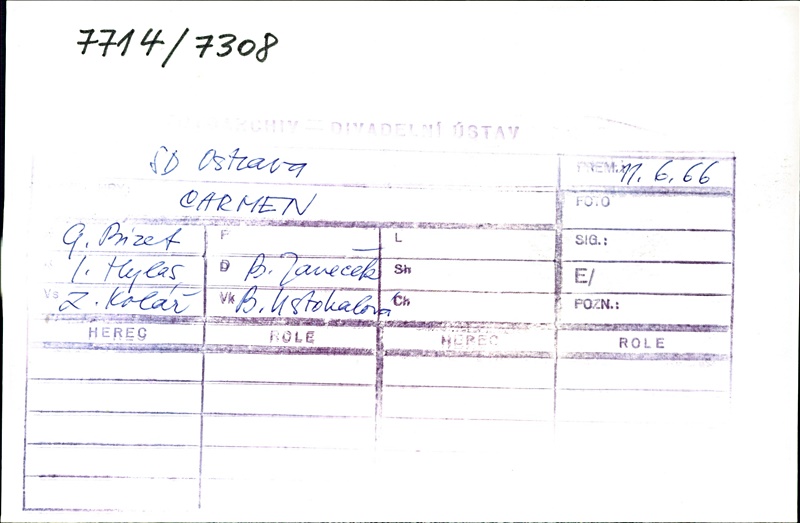 7714/7308
ARCHIV — DIVADELNÍ ÚSTAV
SD Ostrava
PREM.: 11. 6. 66
CARMEN
FOTO
G. Bizet F L SIG.:
I. Hylas D B. Janeček Sh E/
Vs Z. Kolář Vk B. Ustohalova Ch POZN.:
HEREC ROLE HEREC ROLE